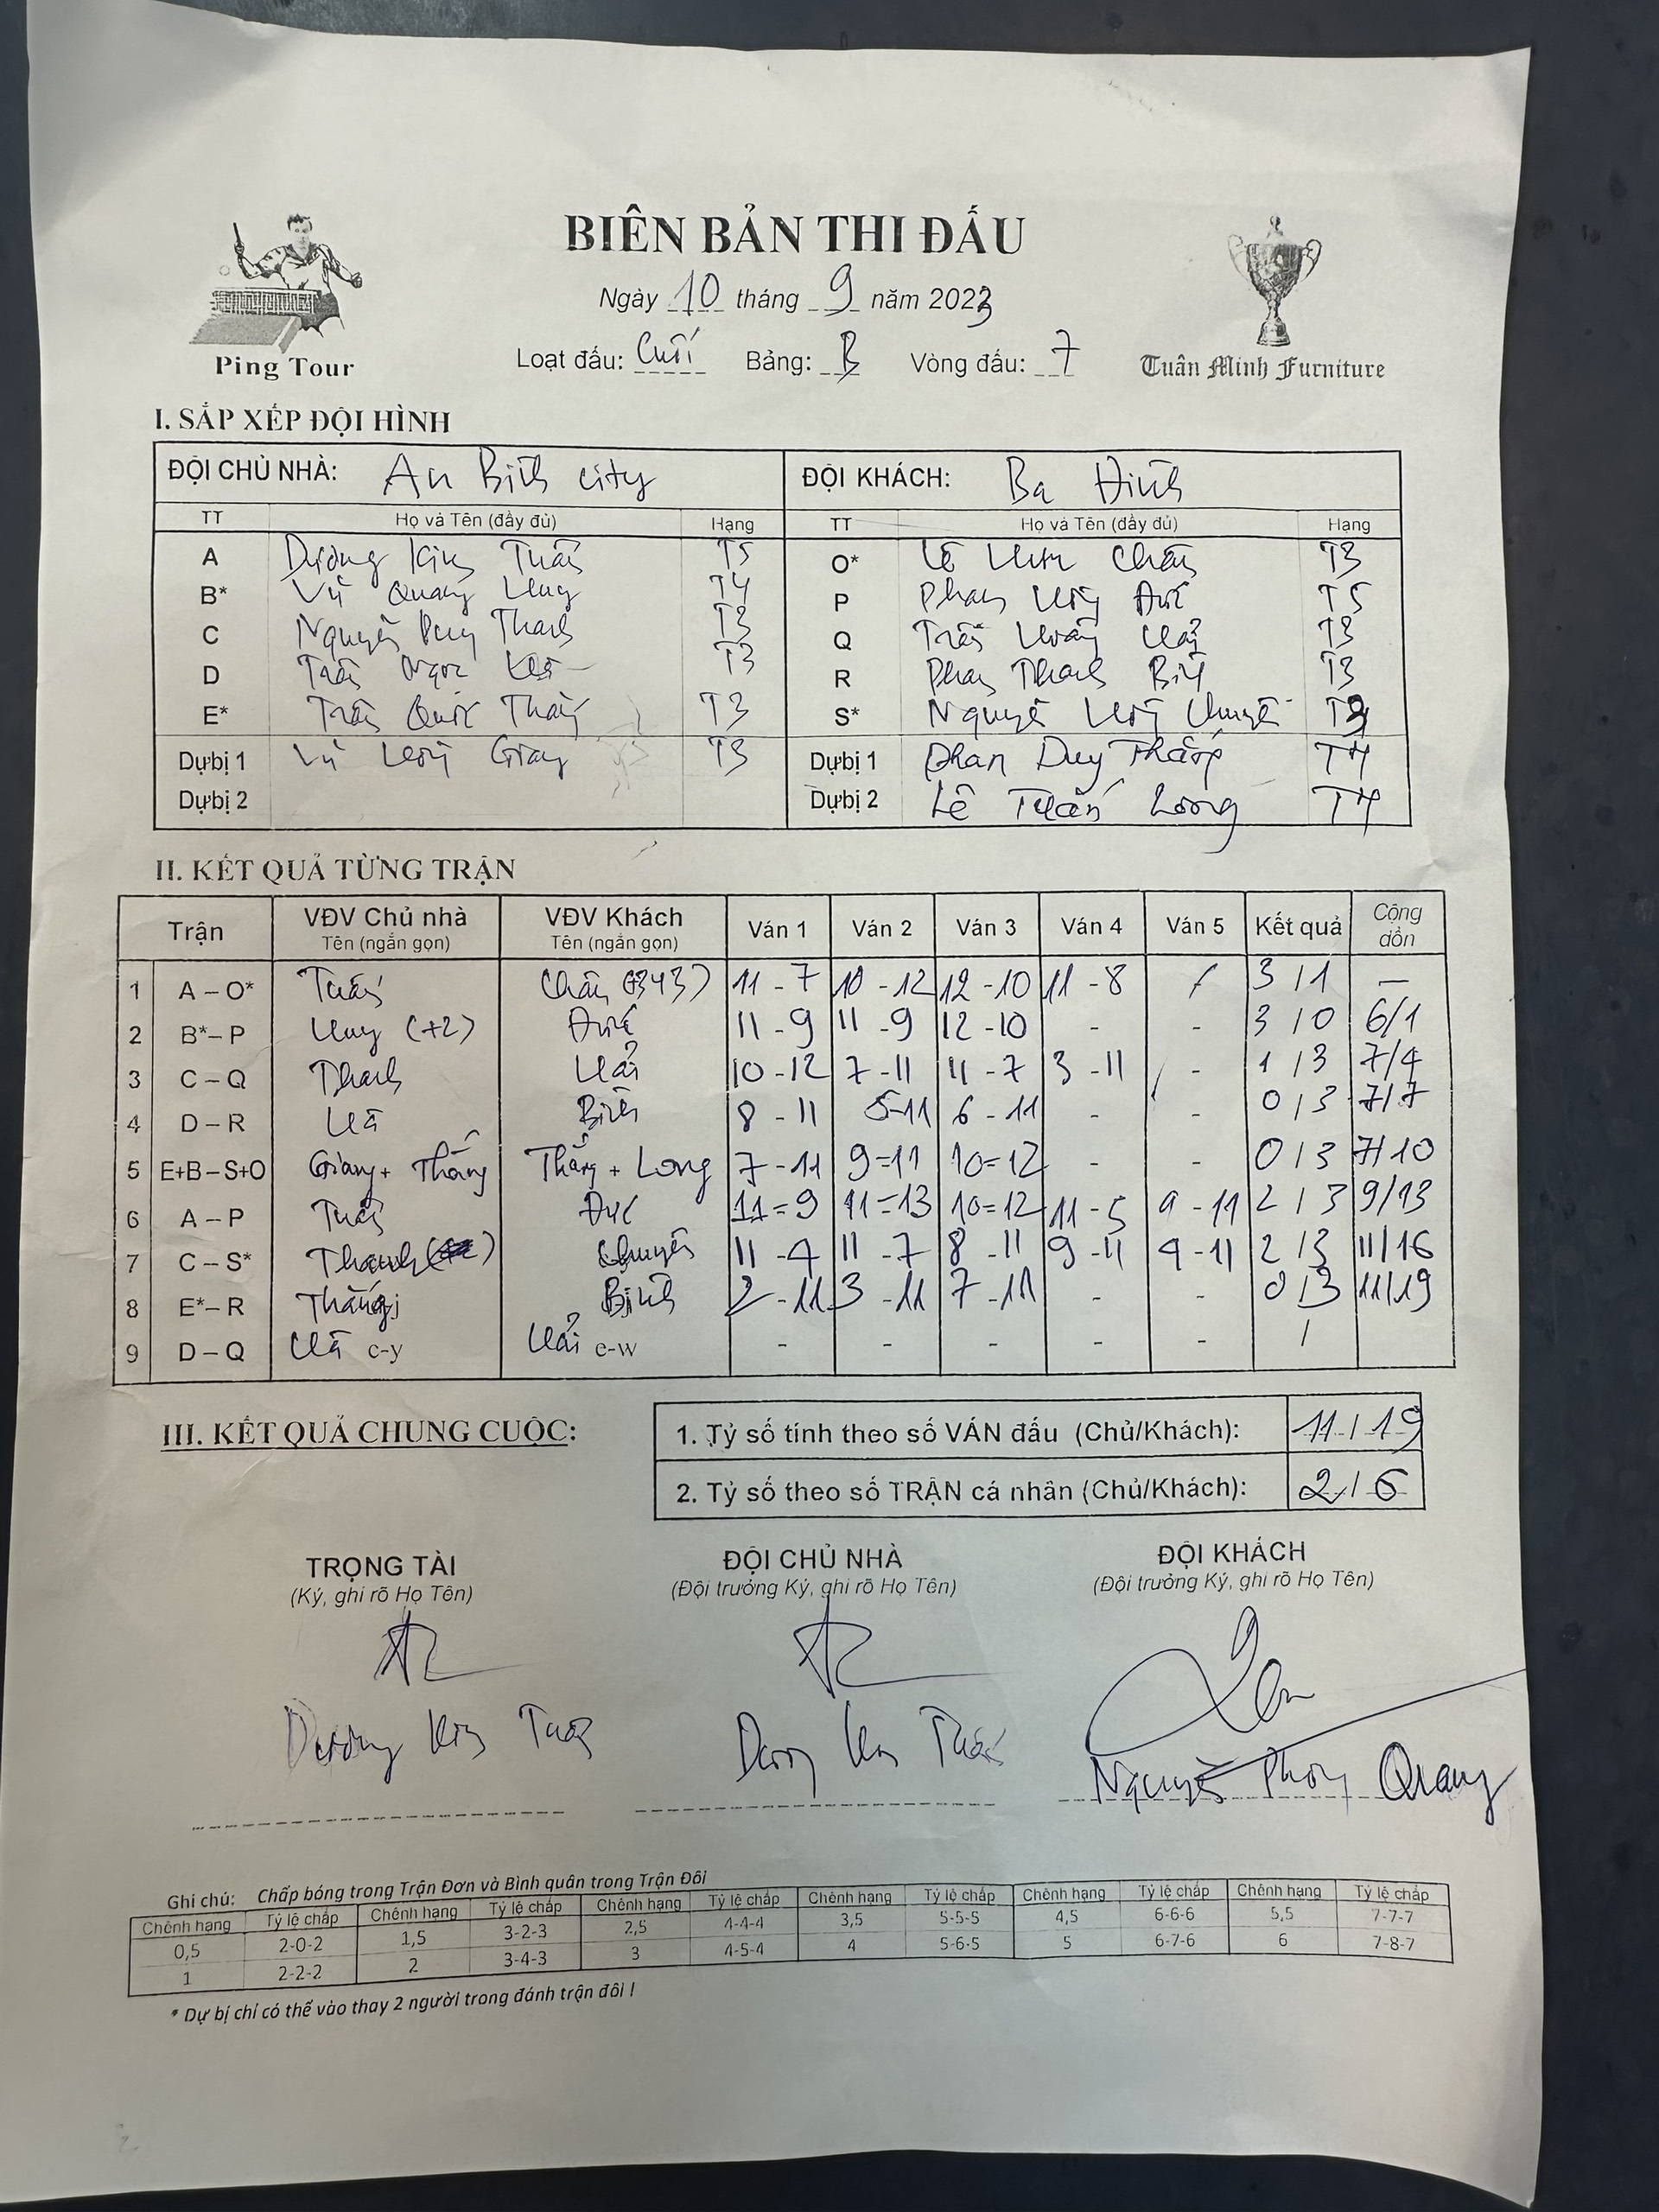 BIÊN BẢN THI ĐẤU
Ngày 10 tháng 9 năm 2023
Ping Tour
Loạt đấu: Cuối Bảng: B Vòng đấu: 7
Tuấn Minh Furniture
I. SẮP XẾP ĐỘI HÌNH
ĐỘI CHỦ NHÀ: An Bình city ĐỘI KHÁCH: Ba Đình
TT Họ và Tên (đầy đủ) Hạng TT Họ và Tên (đầy đủ) Hạng
A Dương Kim Tuấn T5 O* Lê Châu T3
B* Vũ Quang Huy T4 P Phan Đức T5
C Nguyễn Duy Thanh T3 Q Trần Hoàng Hải T3
D Trần Ngọc T3 R Phan Thanh Bình T3
E* Trần Quốc Thắng T3 S* Nguyễn T3
Dự bị 1 Vũ Giang T3 Dự bị 1 Phan Duy Thắng T4
Dự bị 2 Dự bị 2 Lê Tuấn Long T4
II. KẾT QUẢ TỪNG TRẬN
Trận VĐV Chủ nhà Tên (ngắn gọn) VĐV Khách Tên (ngắn gọn) Ván 1 Ván 2 Ván 3 Ván 4 Ván 5 Kết quả Cộng dồn
1 A – O* Tuấn Châu (343) 11 - 7 10 - 12 12 - 10 11 - 8 / 3 / 1 —
2 B* – P Huy (+2) Đức 11 - 9 11 - 9 12 - 10 - - 3 / 0 6/1
3 C – Q Thanh Hải 10 - 12 7 - 11 11 - 7 3 - 11 - 1 / 3 7/4
4 D – R Bình 8 - 11 5-11 6 - 11 - - 0 / 3 7/7
5 E+B – S+O Giang + Thắng Thắng + Long 7 - 11 9 - 11 10 - 12 - - 0 / 3 7/10
6 A – P Tuấn Đức 11 - 9 11 - 13 10 - 12 11 - 5 9 - 11 2 / 3 9/13
7 C – S* Thanh 11 - 4 11 - 7 8 - 11 9 - 11 9 - 11 2 / 3 11/16
8 E* – R Thắng Bình 2 - 11 3 - 11 7 - 11 - - 0 / 3 11/19
9 D – Q c-y Hải e-w - - - - - /
III. KẾT QUẢ CHUNG CUỘC:
1. Tỷ số tính theo số VÁN đấu (Chủ/Khách): 11 / 19
2. Tỷ số theo số TRẬN cá nhân (Chủ/Khách): 2 / 6
TRỌNG TÀI ĐỘI CHỦ NHÀ ĐỘI KHÁCH
(Ký, ghi rõ Họ Tên) (Đội trưởng Ký, ghi rõ Họ Tên) (Đội trưởng Ký, ghi rõ Họ Tên)
Dương Kim Tuấn Dương Kim Tuấn Nguyễn Phong Quang
Ghi chú: Chấp bóng trong Trận Đơn và Bình quân trong Trận Đôi
Chênh hạng Tỷ lệ chấp Chênh hạng Tỷ lệ chấp Chênh hạng Tỷ lệ chấp Chênh hạng Tỷ lệ chấp Chênh hạng Tỷ lệ chấp Chênh hạng Tỷ lệ chấp
0,5 2-0-2 1,5 3-2-3 2,5 4-4-4 3,5 5-5-5 4,5 6-6-6 5,5 7-7-7
1 2-2-2 2 3-4-3 3 4-5-4 4 5-6-5 5 6-7-6 6 7-8-7
* Dự bị chỉ có thể vào thay 2 người trong đánh trận đôi !